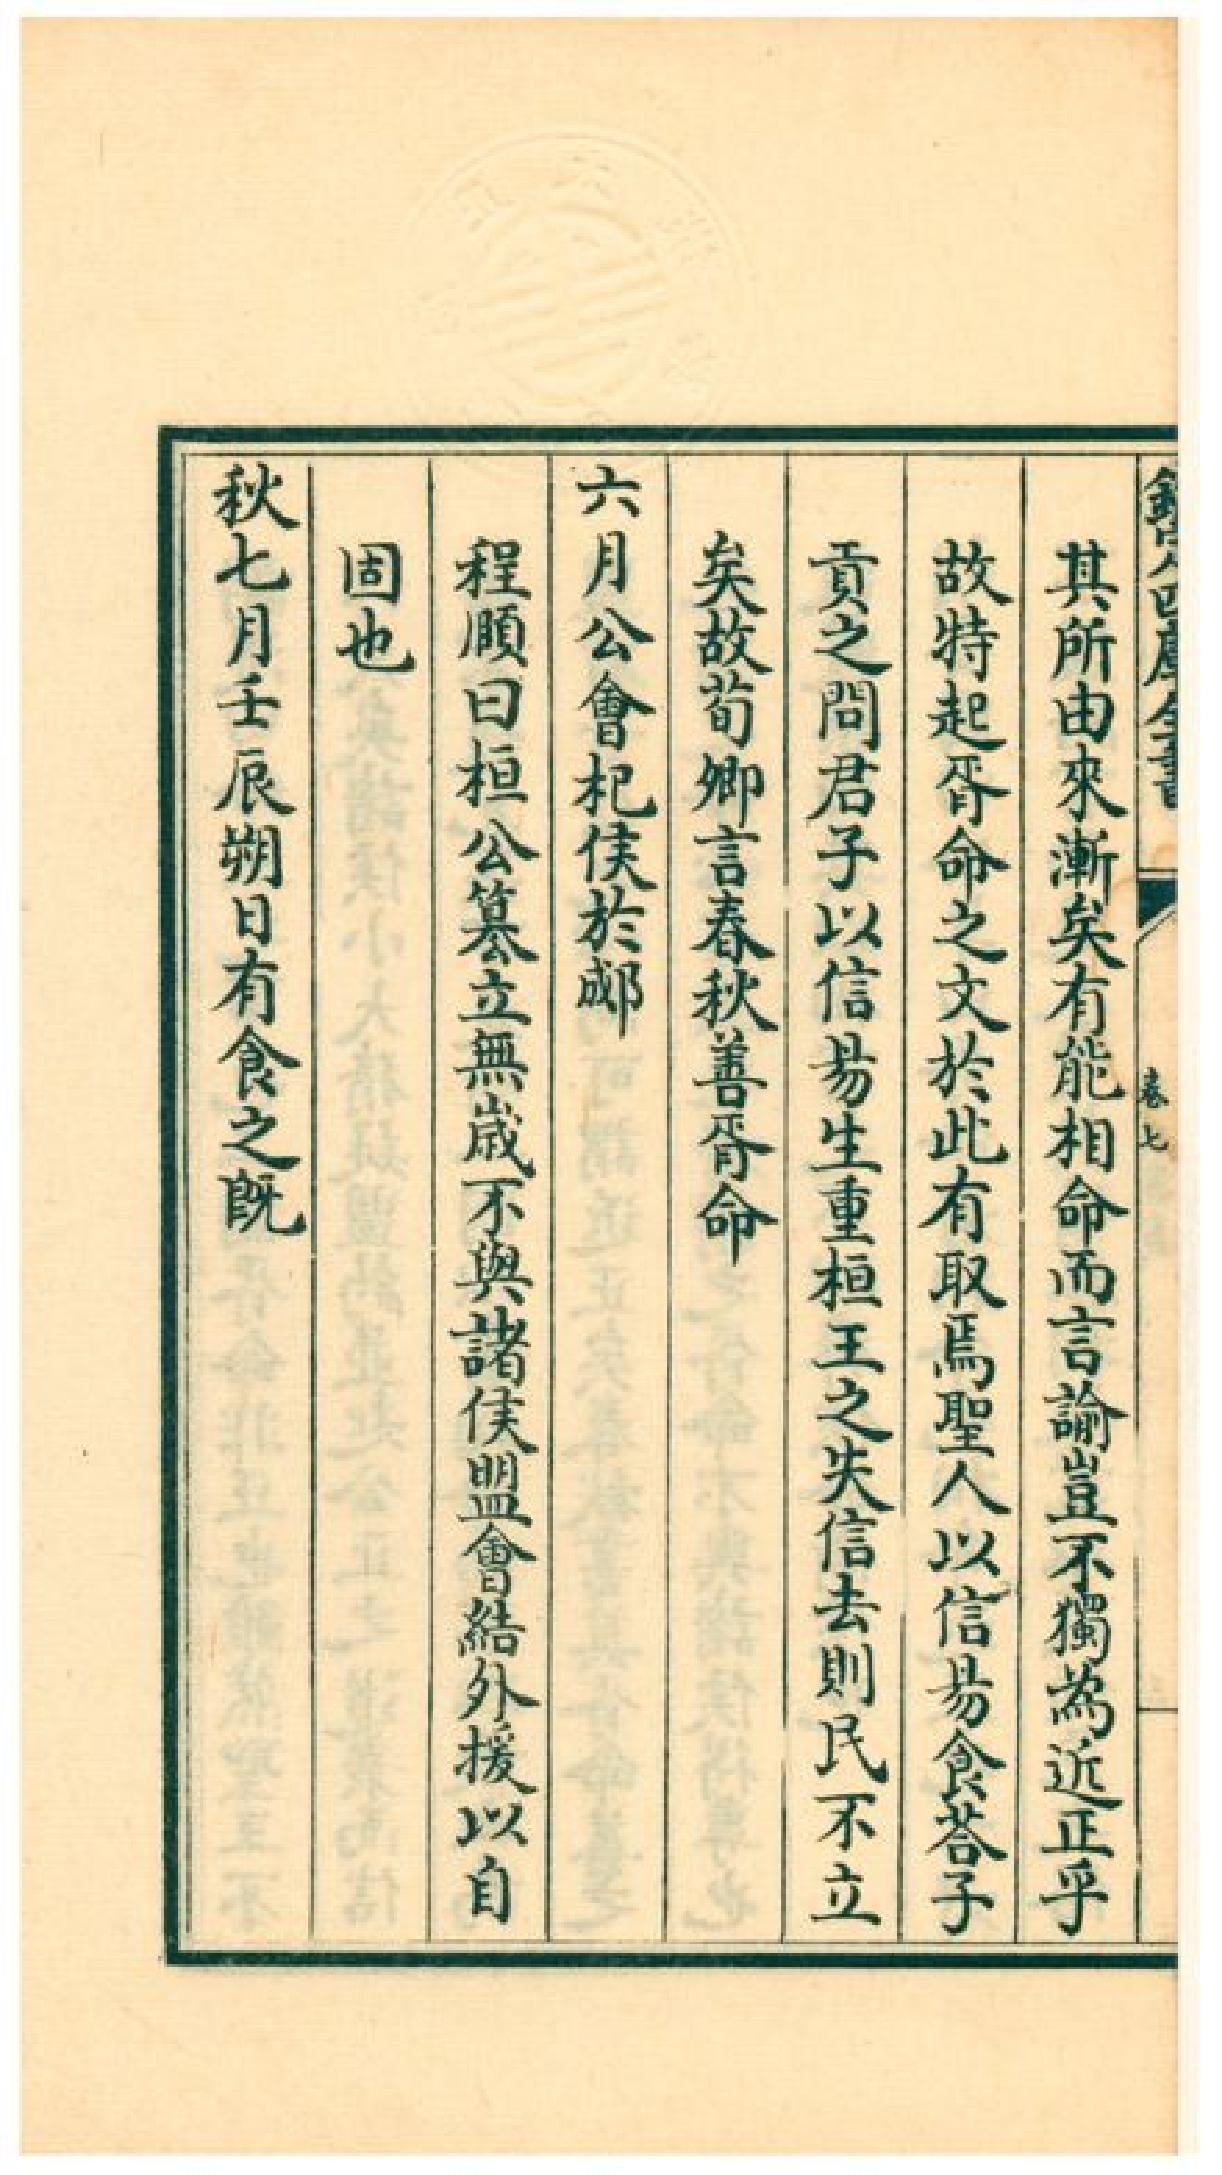 欽定四庫全書
卷七
其所由來漸矣有能相命而言諭豈不獨為近正乎
故特起胥命之文於此有取焉聖人以信易食荅子
貢之問君子以信易生重桓王之失信去則民不立
矣故荀卿言春秋善胥命
六月公會杞侯於郕
程頤曰桓公簒立無歲不與諸侯盟會結外援以自
固也
秋七月壬辰朔日有食之既